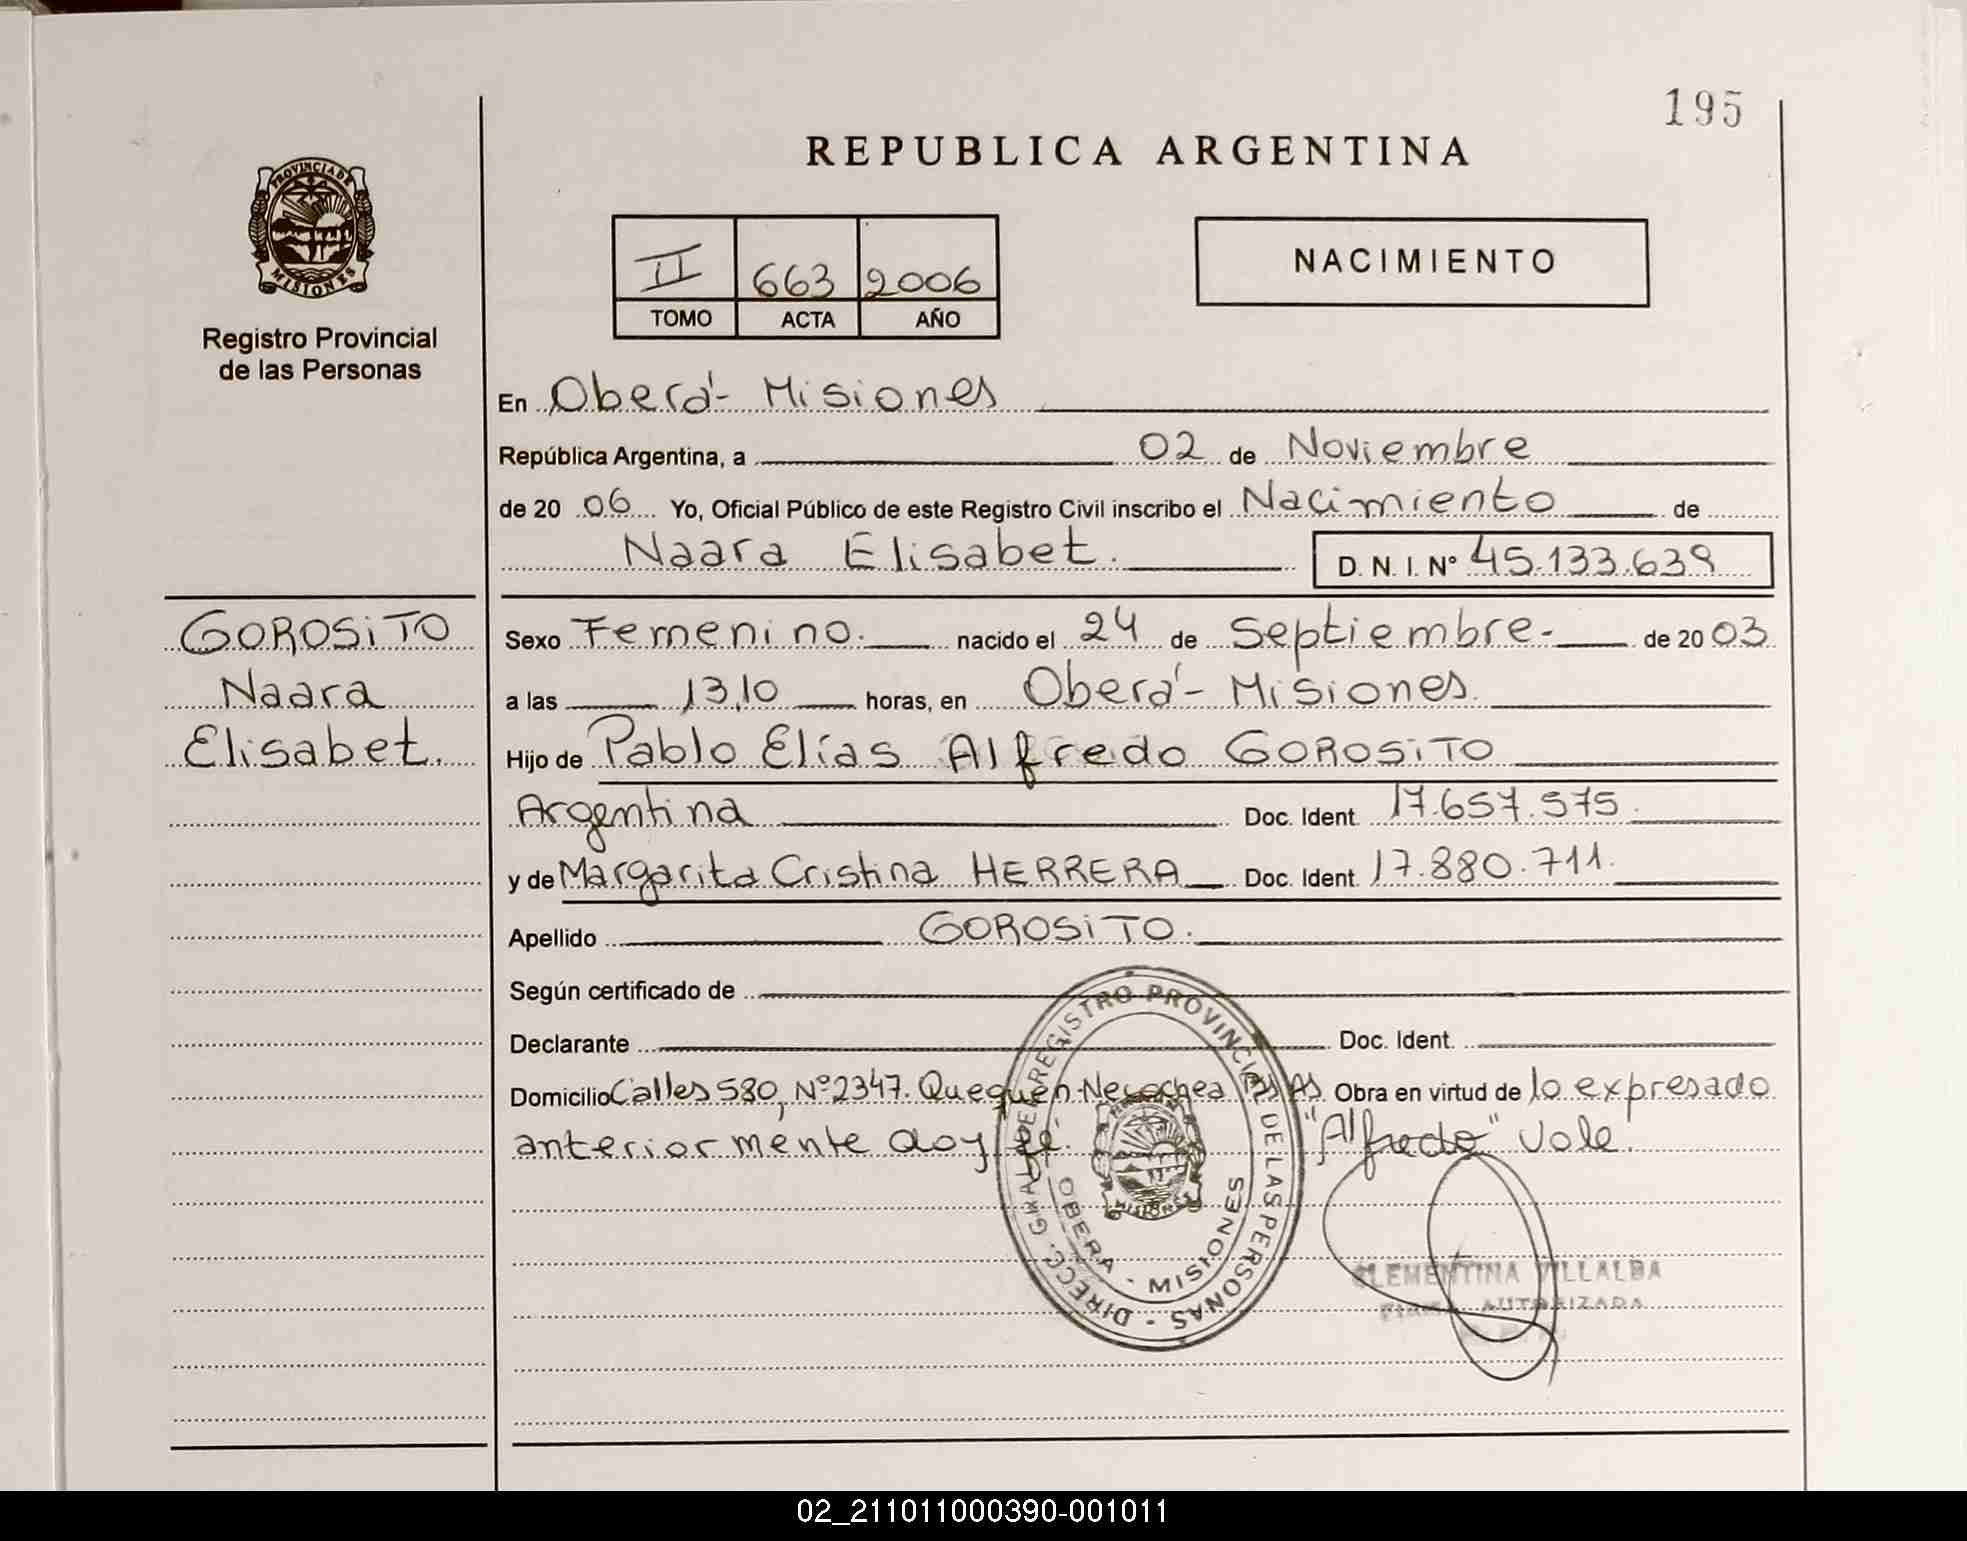 195
REPUBLICA ARGENTINA
PROVINCIA DE
MISIONES
Registro Provincial
de las Personas
II 663 2006
TOMO ACTA AÑO
NACIMIENTO
En Oberá - Misiones
República Argentina, a 02 de Noviembre
de 20 06 Yo, Oficial Público de este Registro Civil inscribo el Nacimiento de
Naara Elisabet. D. N. I. N° 45.133.639
GOROSiTO
Naara
Elisabet.
Sexo Femenino. nacido el 24 de Septiembre- de 20 03
a las 13,10 horas, en Oberá - Misiones.
Hijo de Pablo Elías Alfredo GOROSiTO
Argentina Doc. Ident. 17.657.575.
y de Margarita Cristina HERRERA Doc. Ident. 17.880.711.
Apellido GOROSiTO.
Según certificado de
Declarante Doc. Ident.
Domicilio Calles 580, N° 2347. Quequén-Necochea Bs As. Obra en virtud de lo expresado
anteriormente doy fé. "Alfredo" vale.
DIRECC. GRAL. DEL REGISTRO PROVINCIAL DE LAS PERSONAS -
MISIONES
OBERA - MISIONES
CLEMENTINA VILLALBA
FIRMA AUTORIZADA
02_211011000390-001011